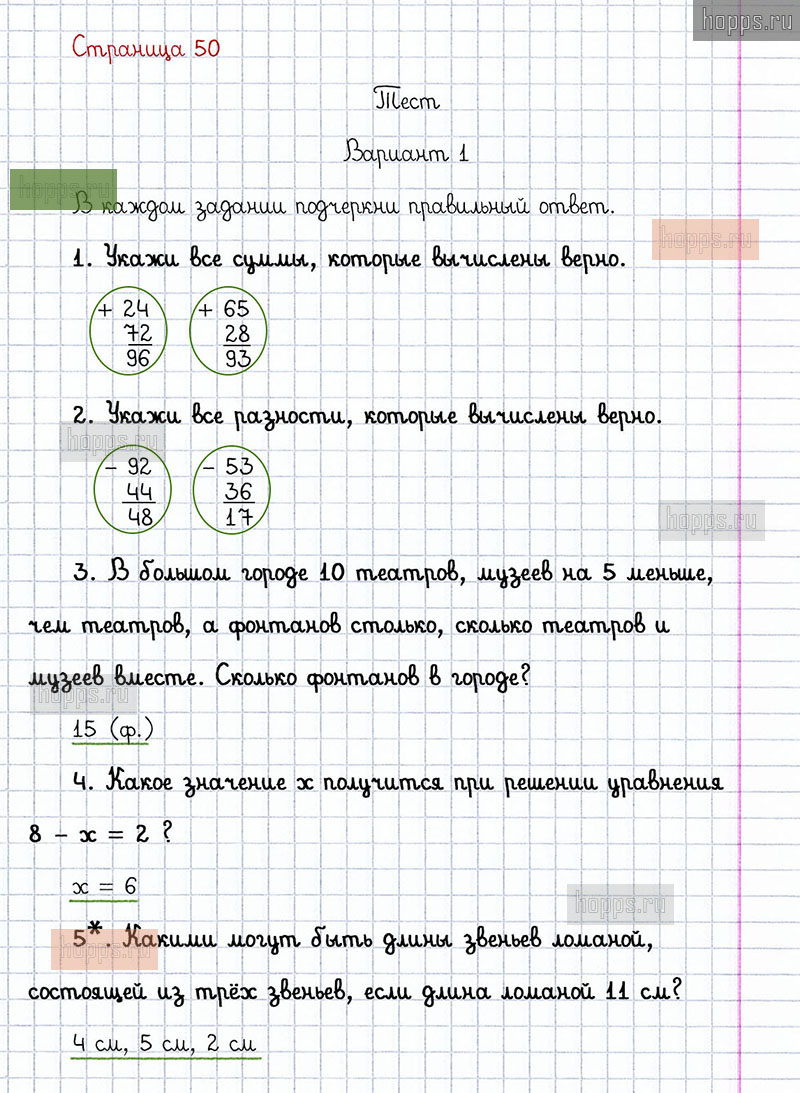 hopps.ru
Страница 50
Тест
Вариант 1
hopps.ru
В каждом задании подчеркни правильный ответ.
hopps.ru
1. Укажи все суммы, которые вычислены верно.
+ 24 + 65
72 28
96 93
2. Укажи все разности, которые вычислены верно.
hopps.ru
- 92 - 53
44 36
48 17
hopps.ru
3. В большом городе 10 театров, музеев на 5 меньше,
чем театров, а фонтанов столько, сколько театров и
музеев вместе. Сколько фонтанов в городе?
hopps.ru
15 (ф.)
4. Какое значение x получится при решении уравнения
8 - x = 2 ?
x = 6
hopps.ru
5*. Какими могут быть длины звеньев ломаной,
hopps.ru
состоящей из трёх звеньев, если длина ломаной 11 см?
4 см, 5 см, 2 см